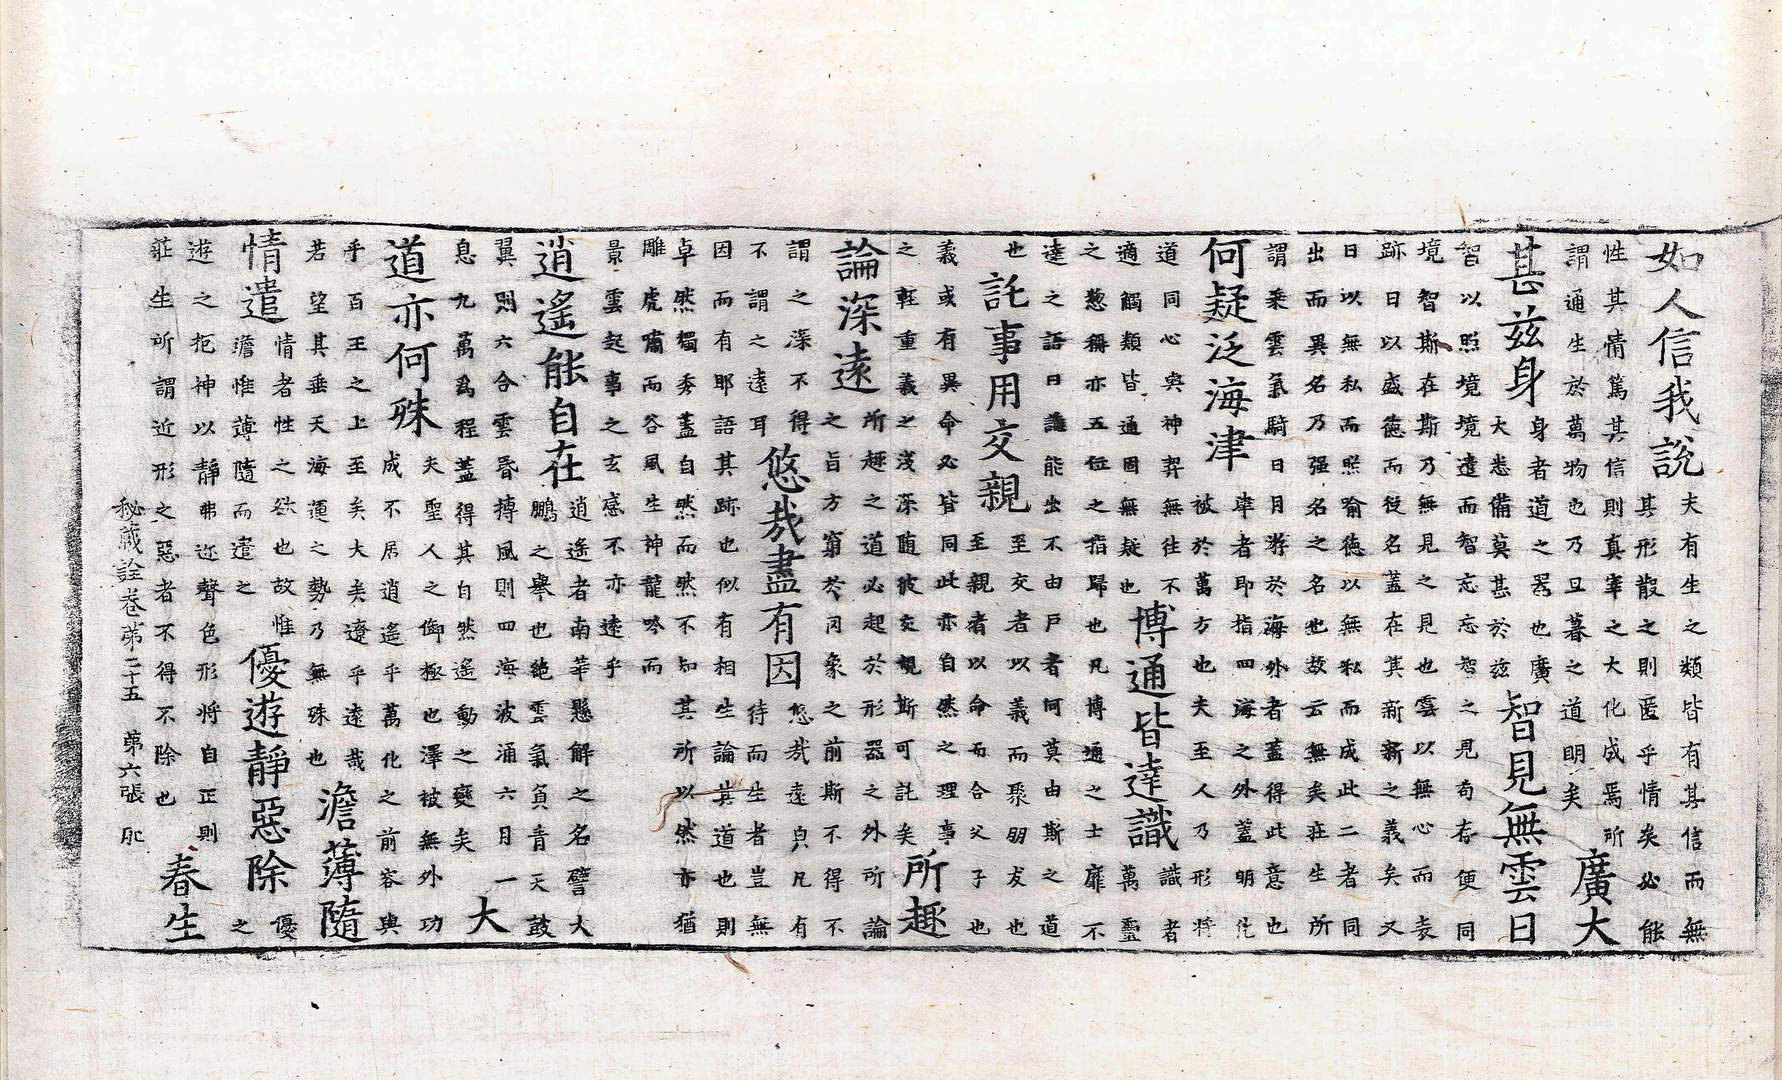 如人信我說
夫有生之類皆有其信而無
其形散之則匿乎情矣必能
性其情篤其信則真宰之大化成焉所
謂通生於萬物也乃旦暮之道明矣
廣大
甚茲身
身者道之器也廣
大悉備莫甚於茲
智見無雲日
智以照境境達而智忘忘智之見苟存便同
境智斯在斯乃無見之見也雲以無心而表
跡日以盛德而後名蓋在其新新之義矣又
日以無私而照喻德以無私而成此二者同
出而異名乃强名之名也故云無矣莊生所
謂乘雲氣騎日月游於海外者蓋得此意也
何疑泛海津
津者即指四海之外蓋明化
被於萬方也夫至人乃形將
道同心與神契無往不
適觸類皆通固無疑也
博通皆達識
識者
萬靈
之惣稱亦五位之指歸也凡博通之士靡不
達之語曰誰能出不由戶者何莫由斯之道
也
託事用交親
至交者以義而聚朋友也
至親者以命而合父子也
義或有異命必皆同此亦自然之理事
之輕重義之淺深随彼交親斯可託矣
所趣
論深遠
所趣之道必起於形器之外所論
之旨方窮於罔象之前斯不得不
謂之深不得
不謂之遠耳
悠哉盡有因
悠哉遠凡有
待而生者豈無
因而有耶語其跡也似有相生論其道也則
卓然獨秀蓋自然而然不知其所以然亦猶
雕虎嘯而谷風生神龍吟而
景雲起事之玄感不亦遠乎
逍遙能自在
逍遙者南華懸解之名譬大
鵬之舉也絕雲氣負青天鼓
翼則六合雲昏搏風則四海波涌六月一
息九萬為程蓋得其自然遙動之變矣
大
道亦何殊
夫聖人之御極也澤被無外功
成不居逍遙乎萬化之前容與
乎百王之上至矣大矣遼乎遠哉
若望其垂天海運之勢乃無殊也
澹薄隨
情遣
情者性之欲也故惟
澹惟薄隨而遣之
優遊靜惡除
優
之
遊之扼神以靜弗迩聲色形將自正則
莊生所謂近形之惡者不得不除也
春生
秘藏詮卷第二十五 第六張